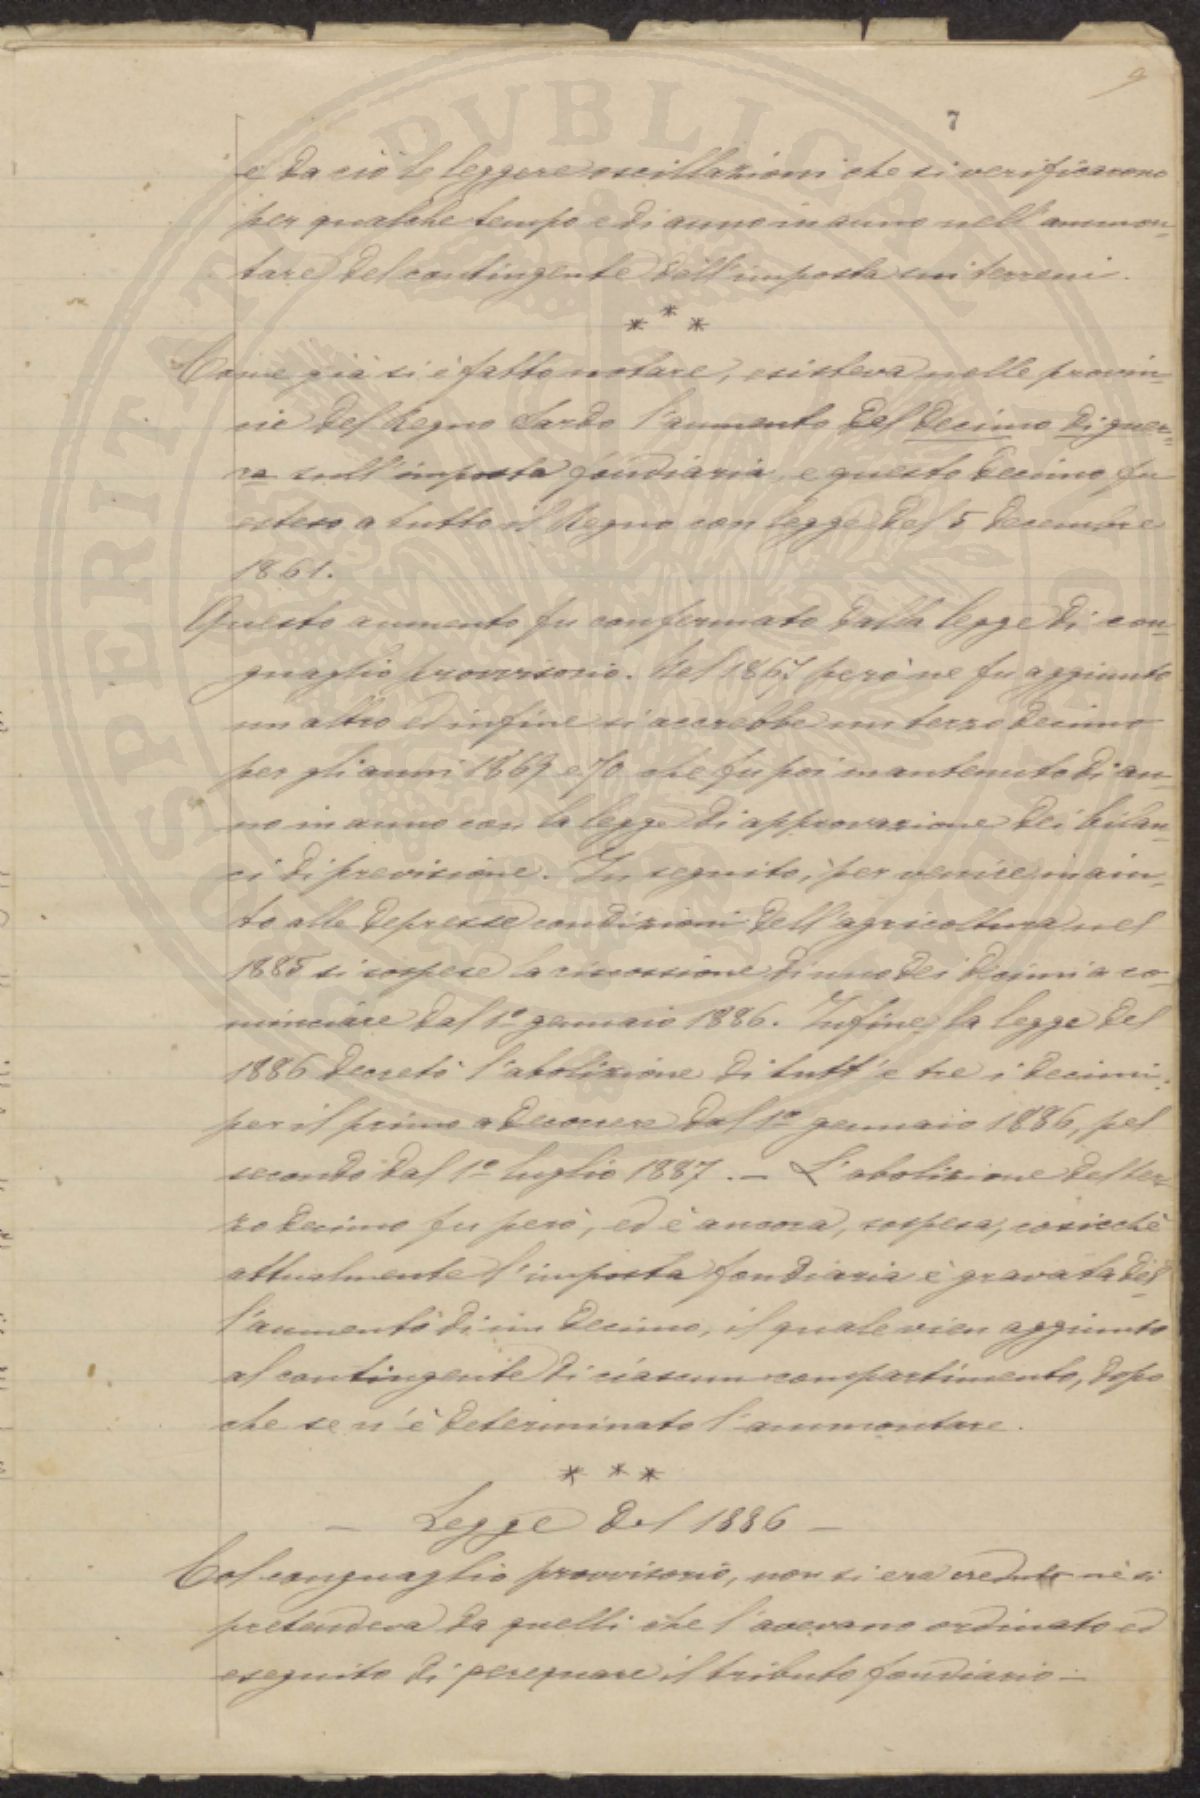 9
7
e da ciò le leggere oscillazioni che si verificarono
per qualche tempo e di anno in anno nell'ammon-
tare del contingente dell'imposta sui terreni.
***
Come già si è fatto notare, esisteva nelle provin-
cie del Regno Sardo l'aumento del decimo di guer-
ra sull'imposta fondiaria, e questo decimo fu
esteso a tutto il Regno con legge del 5 decembre
1861.
Questo aumento fu confermato dalla legge di con-
guaglio provvisorio. Nel 1867 però ne fu aggiunto
un altro ed infine si accrebbe un terzo decimo
per gli anni 1869 e 70 che fu poi mantenuto di an-
no in anno con la legge di approvazione dei bilan-
ci di previsione. In seguito, per venire in aiu-
to alle depresse condizioni dell'agricoltura nel
1885 si sospese la riscossione di uno dei decimi a co-
minciare dal 1º gennaio 1886. Infine la legge del
1886 decretò l'abolizione di tutt'e tre i decimi:
per il primo a decorrere dal 1º gennaio 1886, pel
secondo dal 1º luglio 1887. — L'abolizione del ter-
zo decimo fu però, ed è ancora, sospesa, cosicchè
attualmente l'imposta fondiaria è gravata del-
l'aumento di un decimo, il quale vien aggiunto
al contingente di ciascun compartimento, dopo
che se n'è determinato l'ammontare.
***
— Legge del 1886 —
Col conguaglio provvisorio, non si era creduto nè si
pretendeva da quelli che l'avevano ordinato ed
eseguito di perequare il tributo fondiario —
PROSPERITATI PUBLICAE